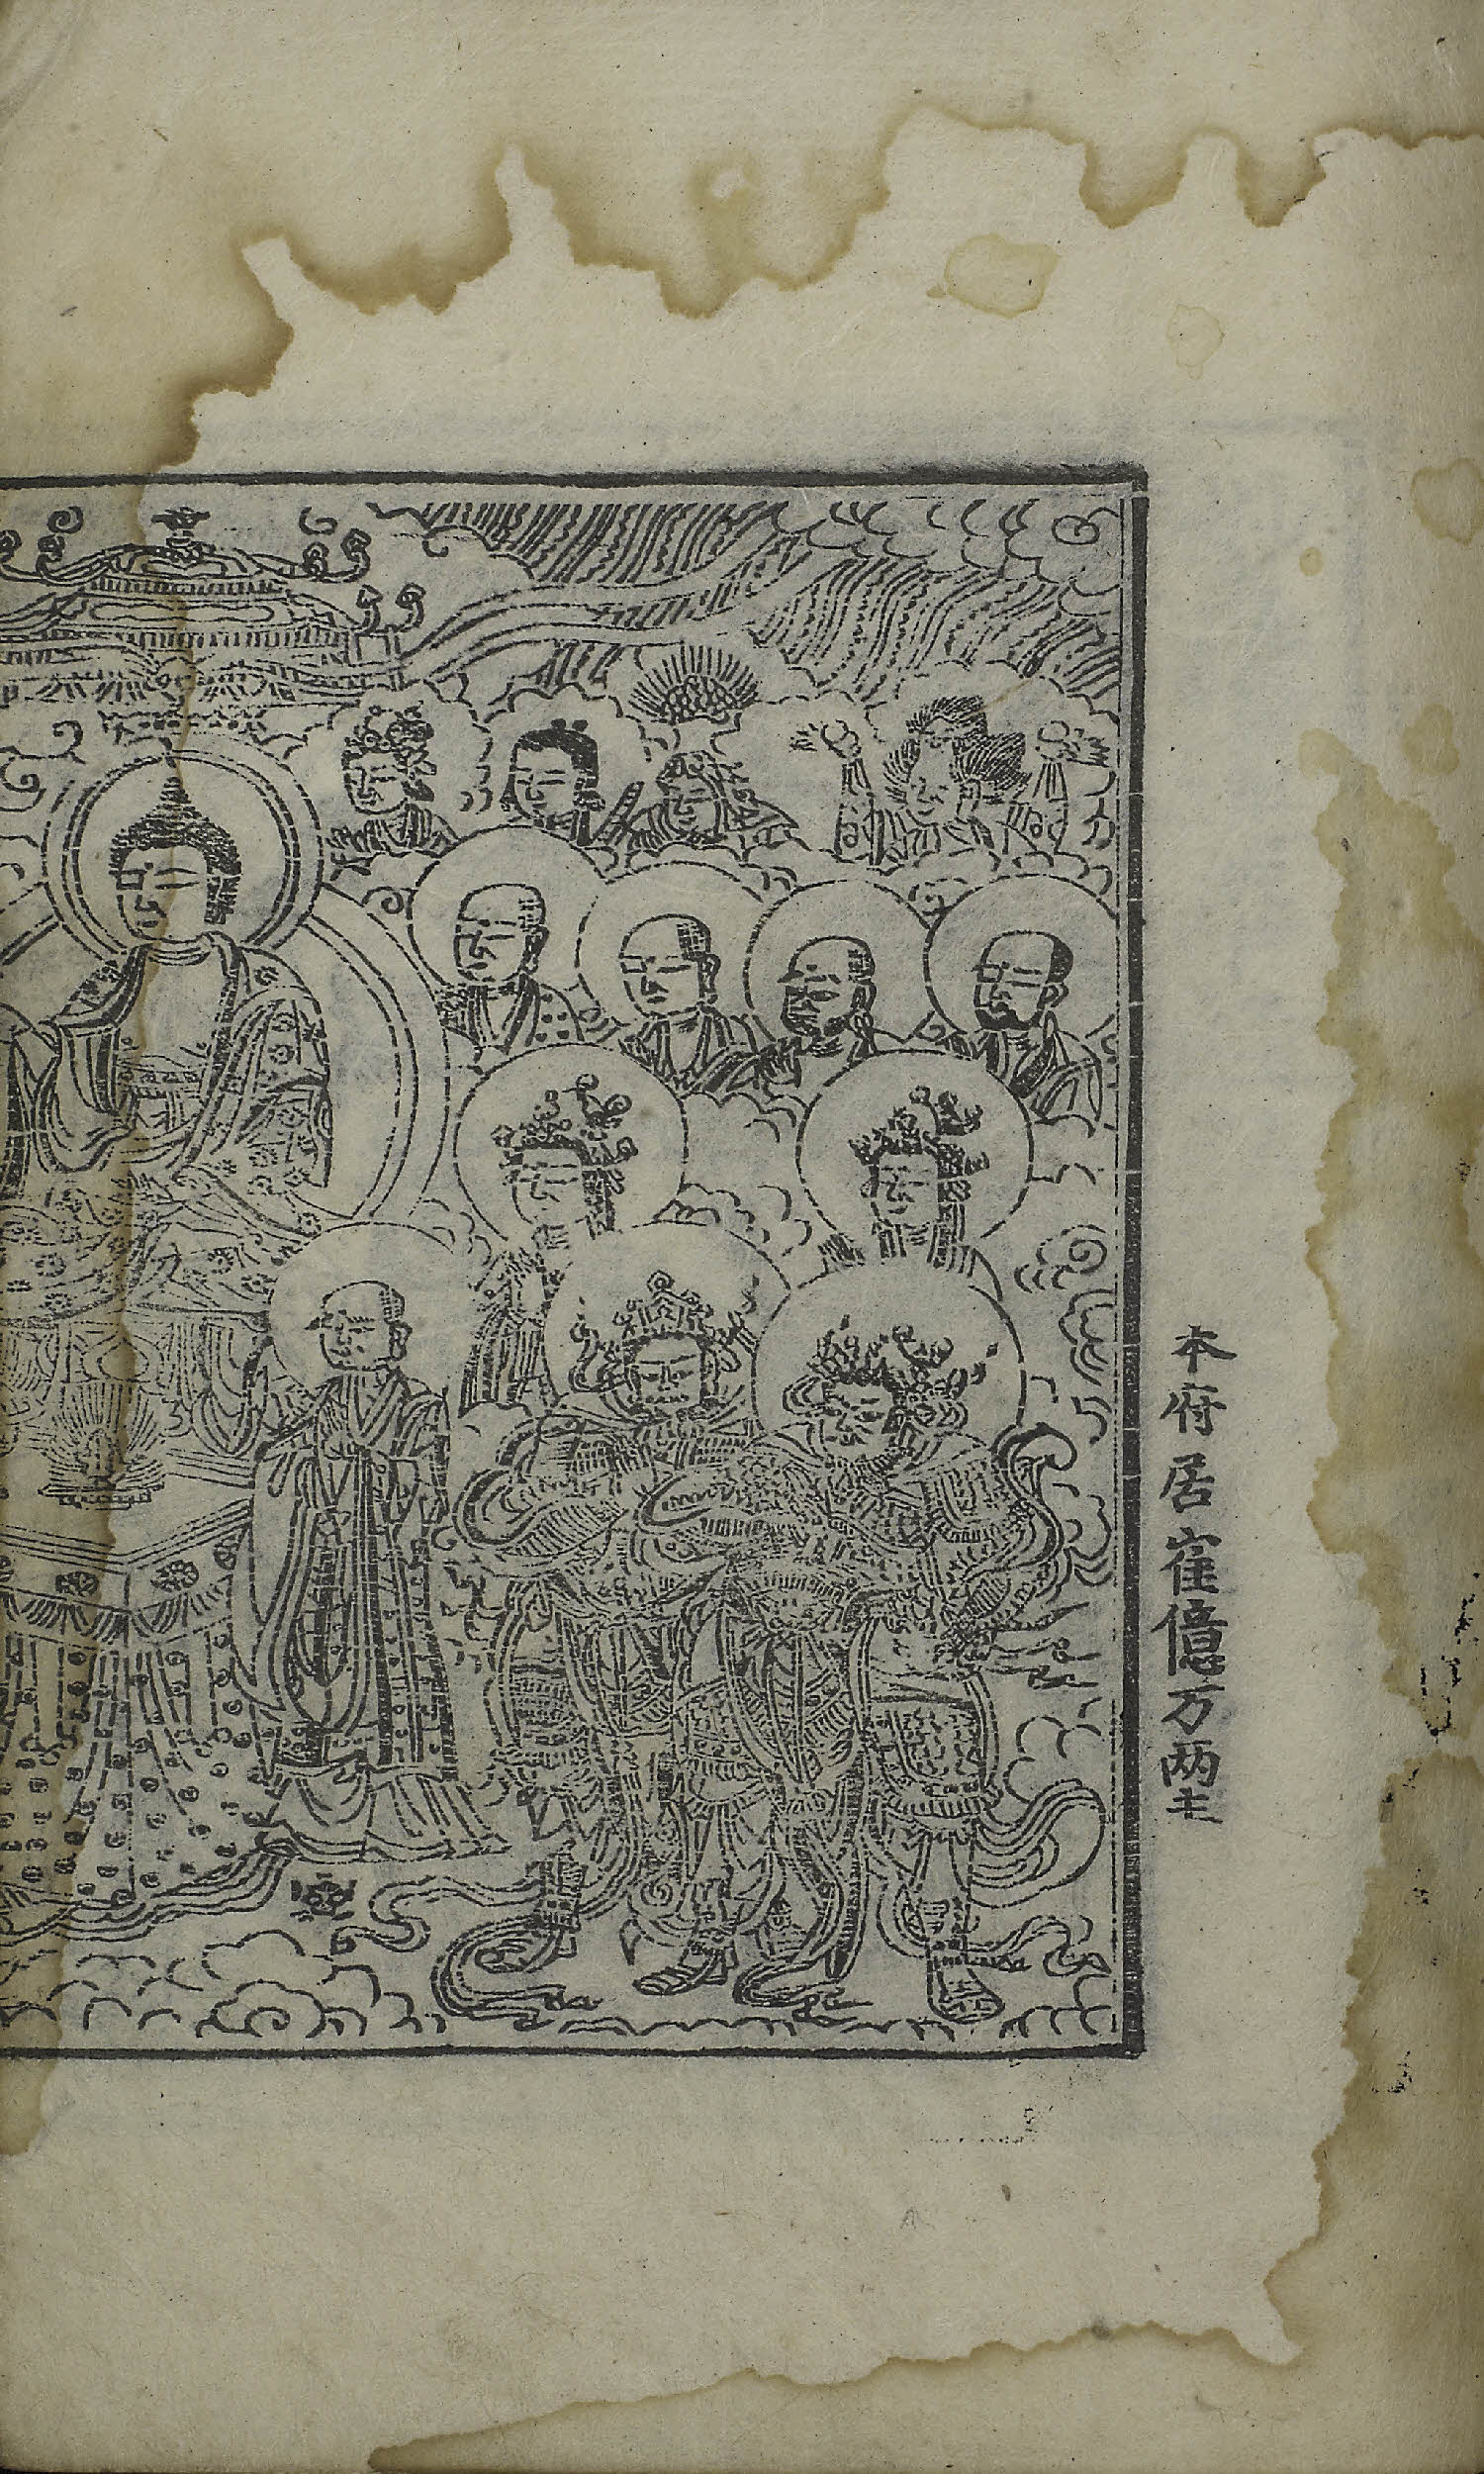 本府居崔億万两主